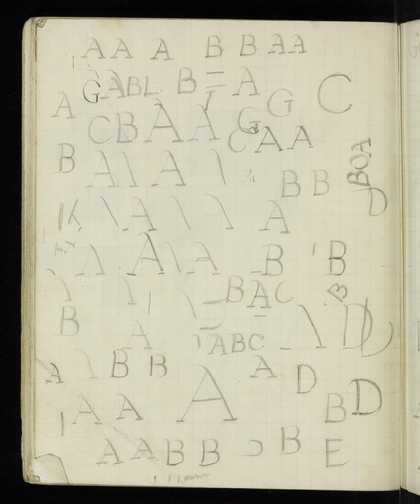 A A A B B A A
G A B L B A
A C B A A G G C
C A A
B A A B B BOA
D
K A A
A A A B B
B A C B
B A ABC D
A B B A D
A A A B D
A A B B B E